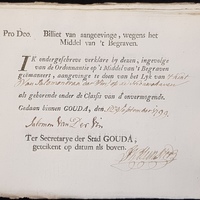 Pro Deo. Billiet van aangeevinge, wegens het
Middel van 't Begraven.
IK ondergeschreve verklare by deeze, ingevolge
van de Ordonnantie op 't Middel van 't Begraven
geëmaneert, aangevinge te doen van het Lyk van 't kint
van
als gehorende onder de Classis van d'onvermogende.
Gedaan binnen GOUDA, den
Salomon Van Der Vin
Ter Secretarye der Stad GOUDA,
getekent op datum als boven.